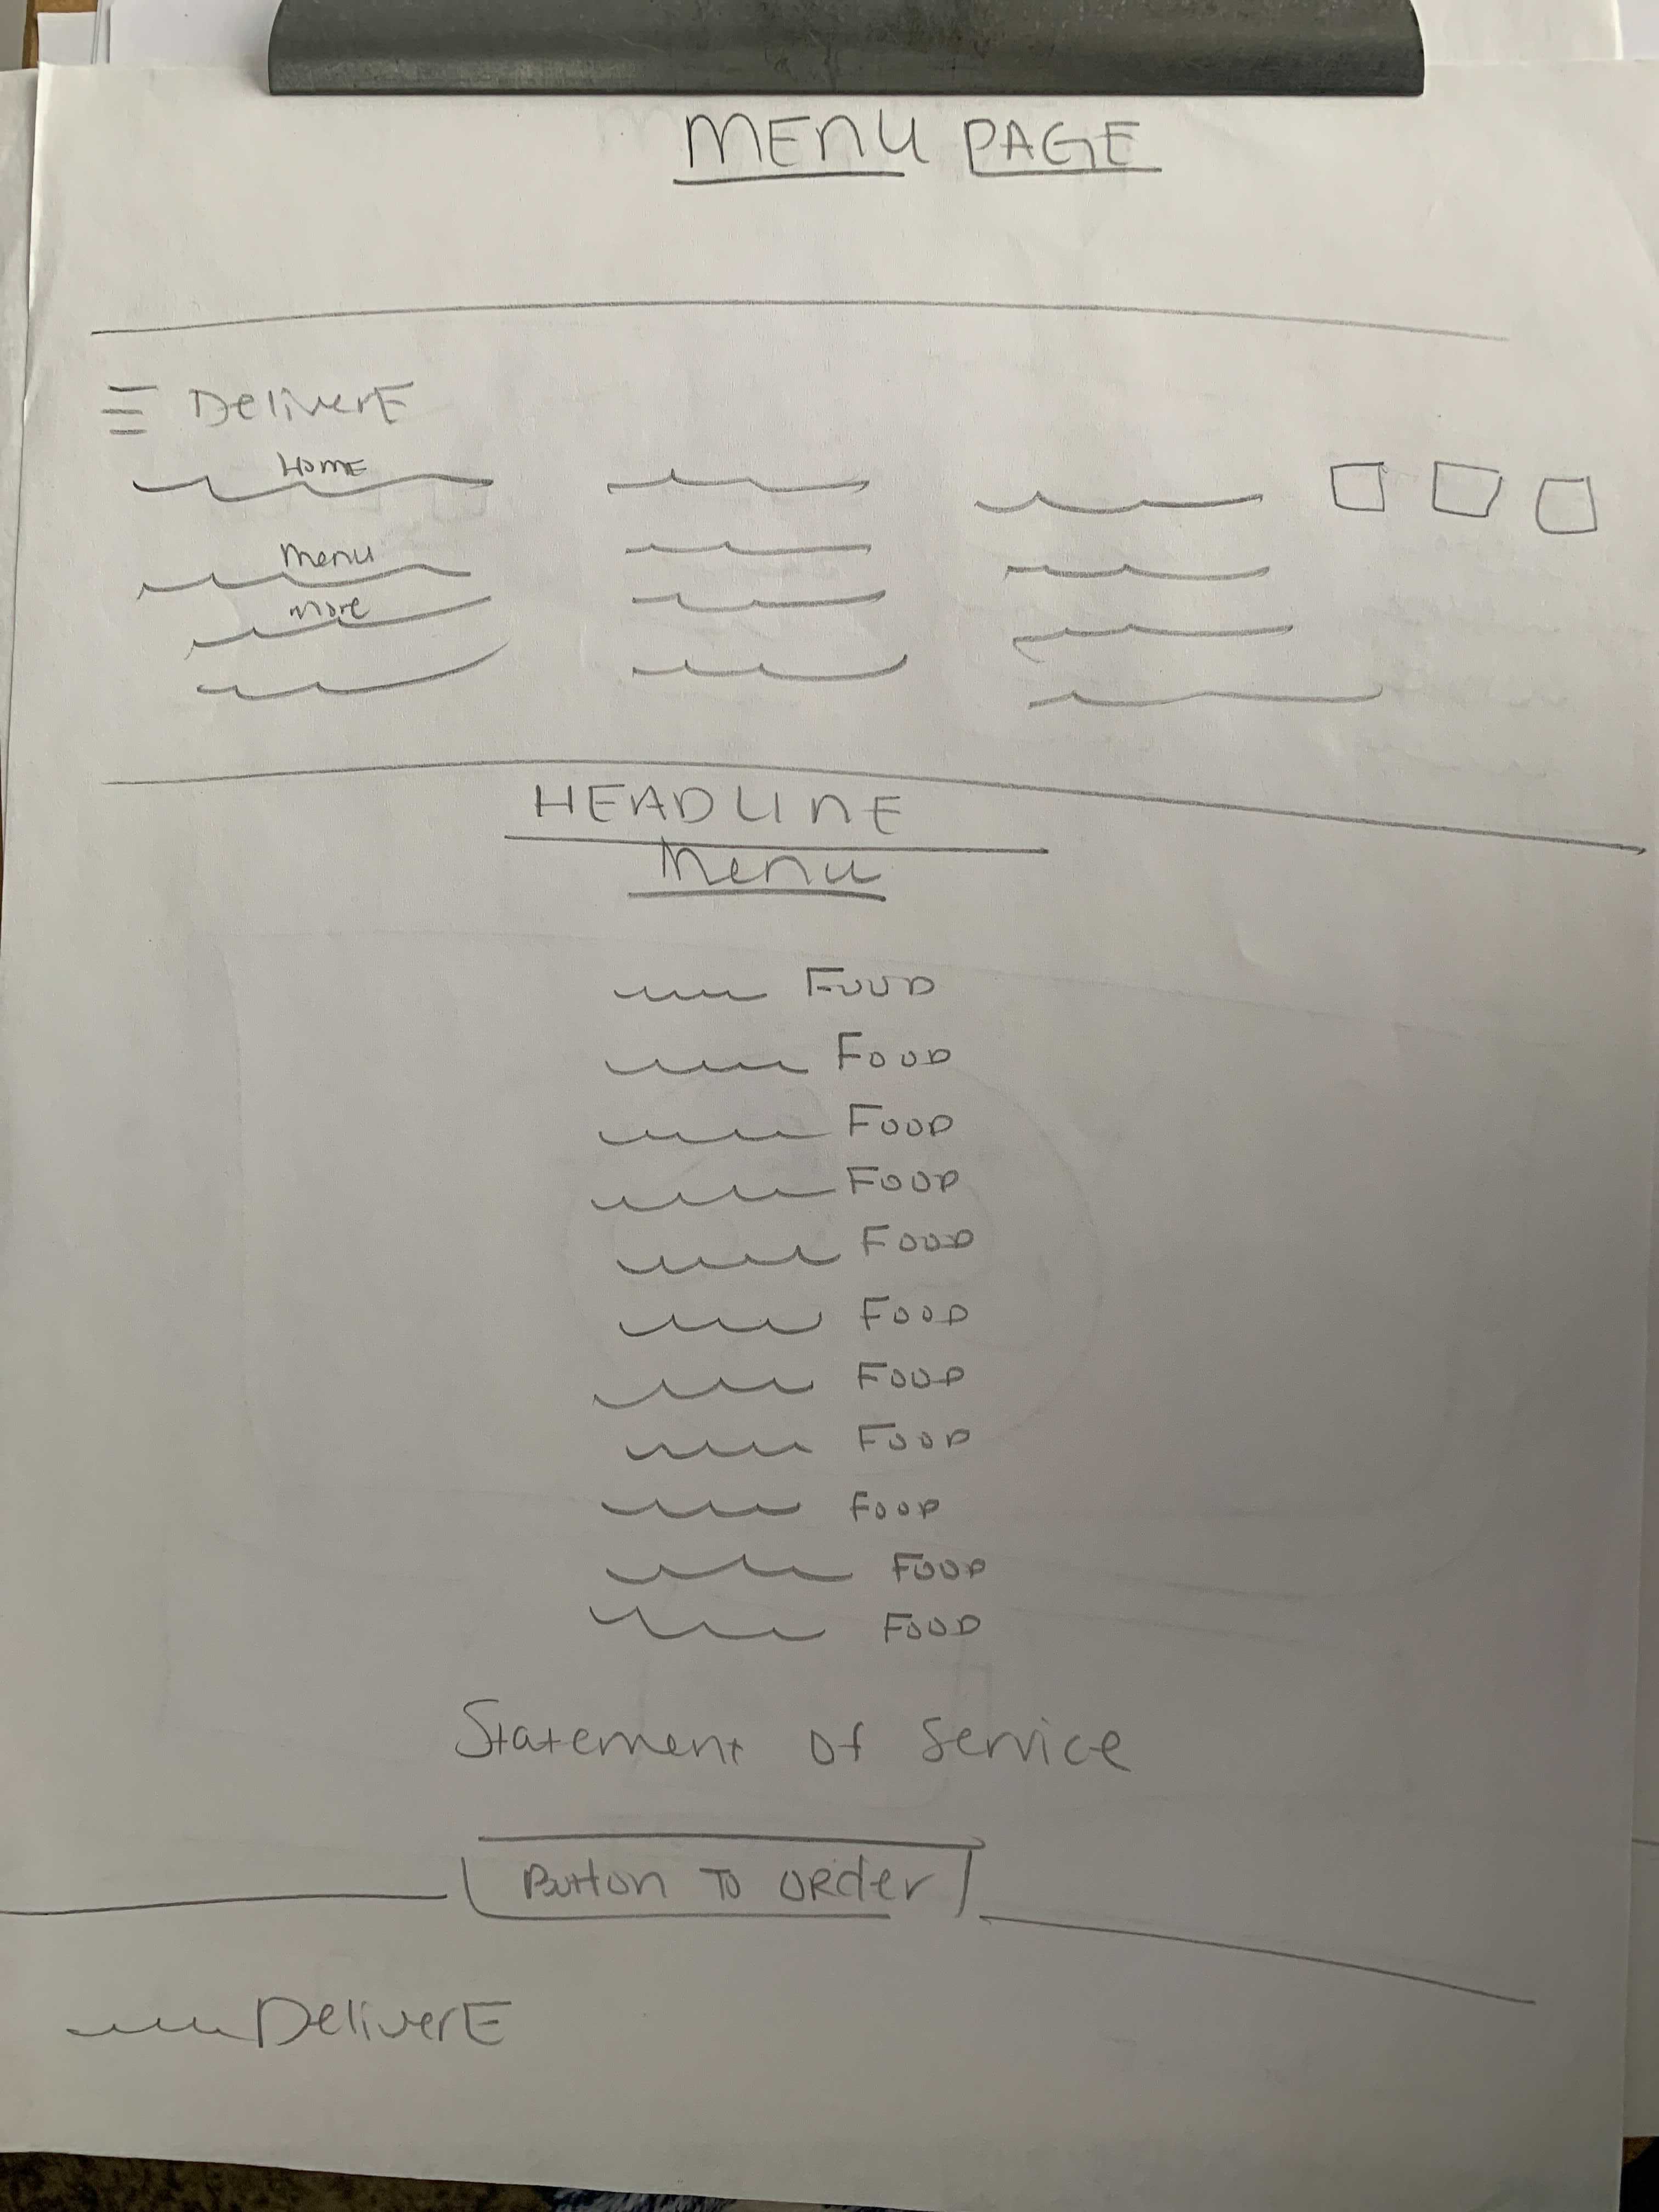 MENU PAGE
DeliverE
HOME
Menu
More
HEADLINE
Menu
FOOD
FOOD
FOOD
FOOD
FOOD
FOOD
FOOD
FOOD
FOOD
FOOD
FOOD
Statement Of Service
Button To Order
DeliverE